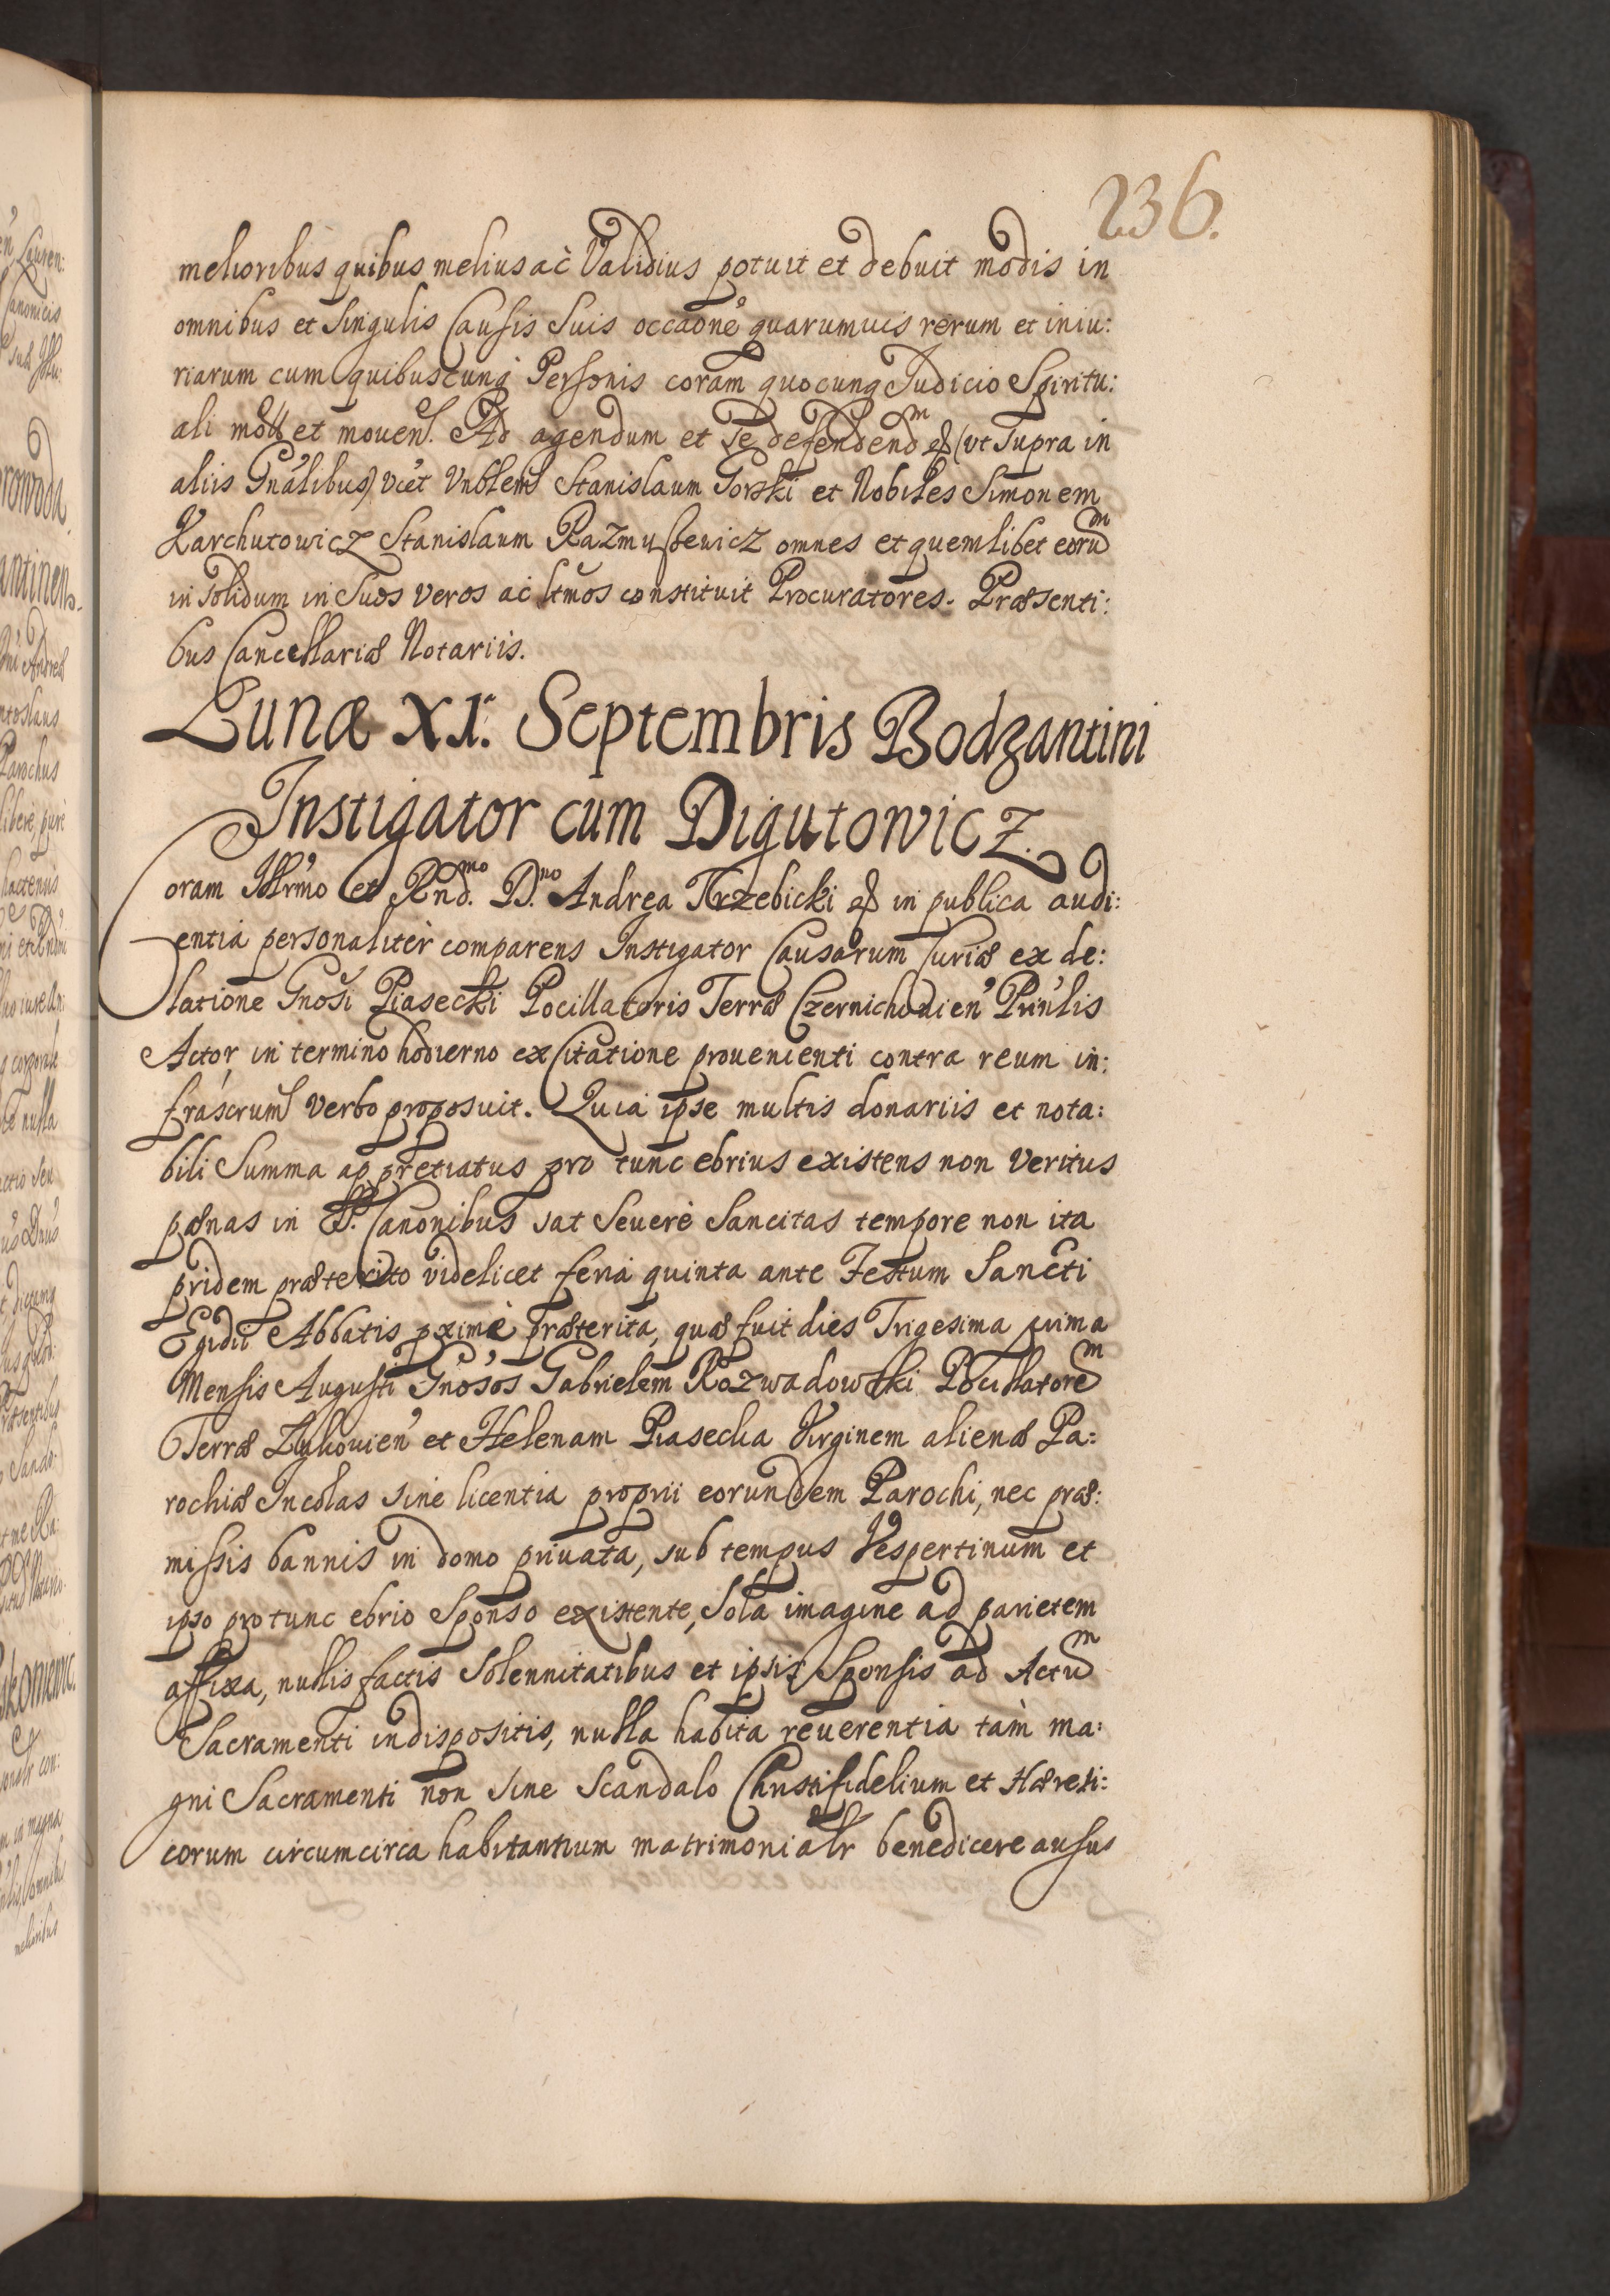 236.
melioribus quibus melius ac Validius potuit et debuit modis in
omnibus et Singulis Causis Suis occaōne quarumuis rerum et iniu:
riarum cum quibuscunq Personis coram quocunq Judicio Spiritu:
ali mōt et mouen. Ad agendum et se defendendm (vt Supra in
aliis Gnālibus) vcet Vnblem Stanislaum Gorski et Nobiles Simonem
Karchutowicz Stanislaum Razmusewicz omnes et quemlibet eorum
in Solidum in Suos veros ac ltmos constituit Procuratores. Præsenti:
bus Cancellariæ Notariis.
Lunæ XI. Septembris Bodzantini
Instigator cum Digutowicz.
Coram Illrmo et Rnd.mo D.no Andrea Trzebicki in publica audi:
entia personaliter comparens Instigator Causarum Curiæ ex de:
latione Gnosi Piasecki Pocillatoris Terræ Czernichouien Prinlis
Actor, in termino hodierno ex Citatione prouenienti contra reum in:
frascrum Verbo proposuit. Quia ipse multis donariis et nota:
bili Summa appretiatus pro tunc ebrius existens non Veritus
pœnas in SS. Canonibus sat Seuerè Sancitas tempore non ita
pridem præterito videlicet feria quinta ante Festum Sancti
Egidii Abbatis pximè Præterita, quæ fuit dies Trigesima prima
Mensis Augusti Gnosos Gabrielem Rozwadowski Pocillatorem
Terræ Zytouien et Helenam Piasecka Virginem alienæ Pa:
rochiæ Incolas sine licentia proprii eorundem Parochi, nec præ:
missis bannis in domo priuata, sub tempus Vespertinum et
ipso pro tunc ebrio Sponso existente, Sola imagine ad parietem
affixa, nullis factis Solennitatibus et ipsis Sponsis ad Actum
Sacramenti indispositis, nulla habita reuerentia tàm ma:
gni Sacramenti non sine scandalo Christifidelium et Hæreti:
corum circumcirca habitantium matrimonialr benedicere ausus